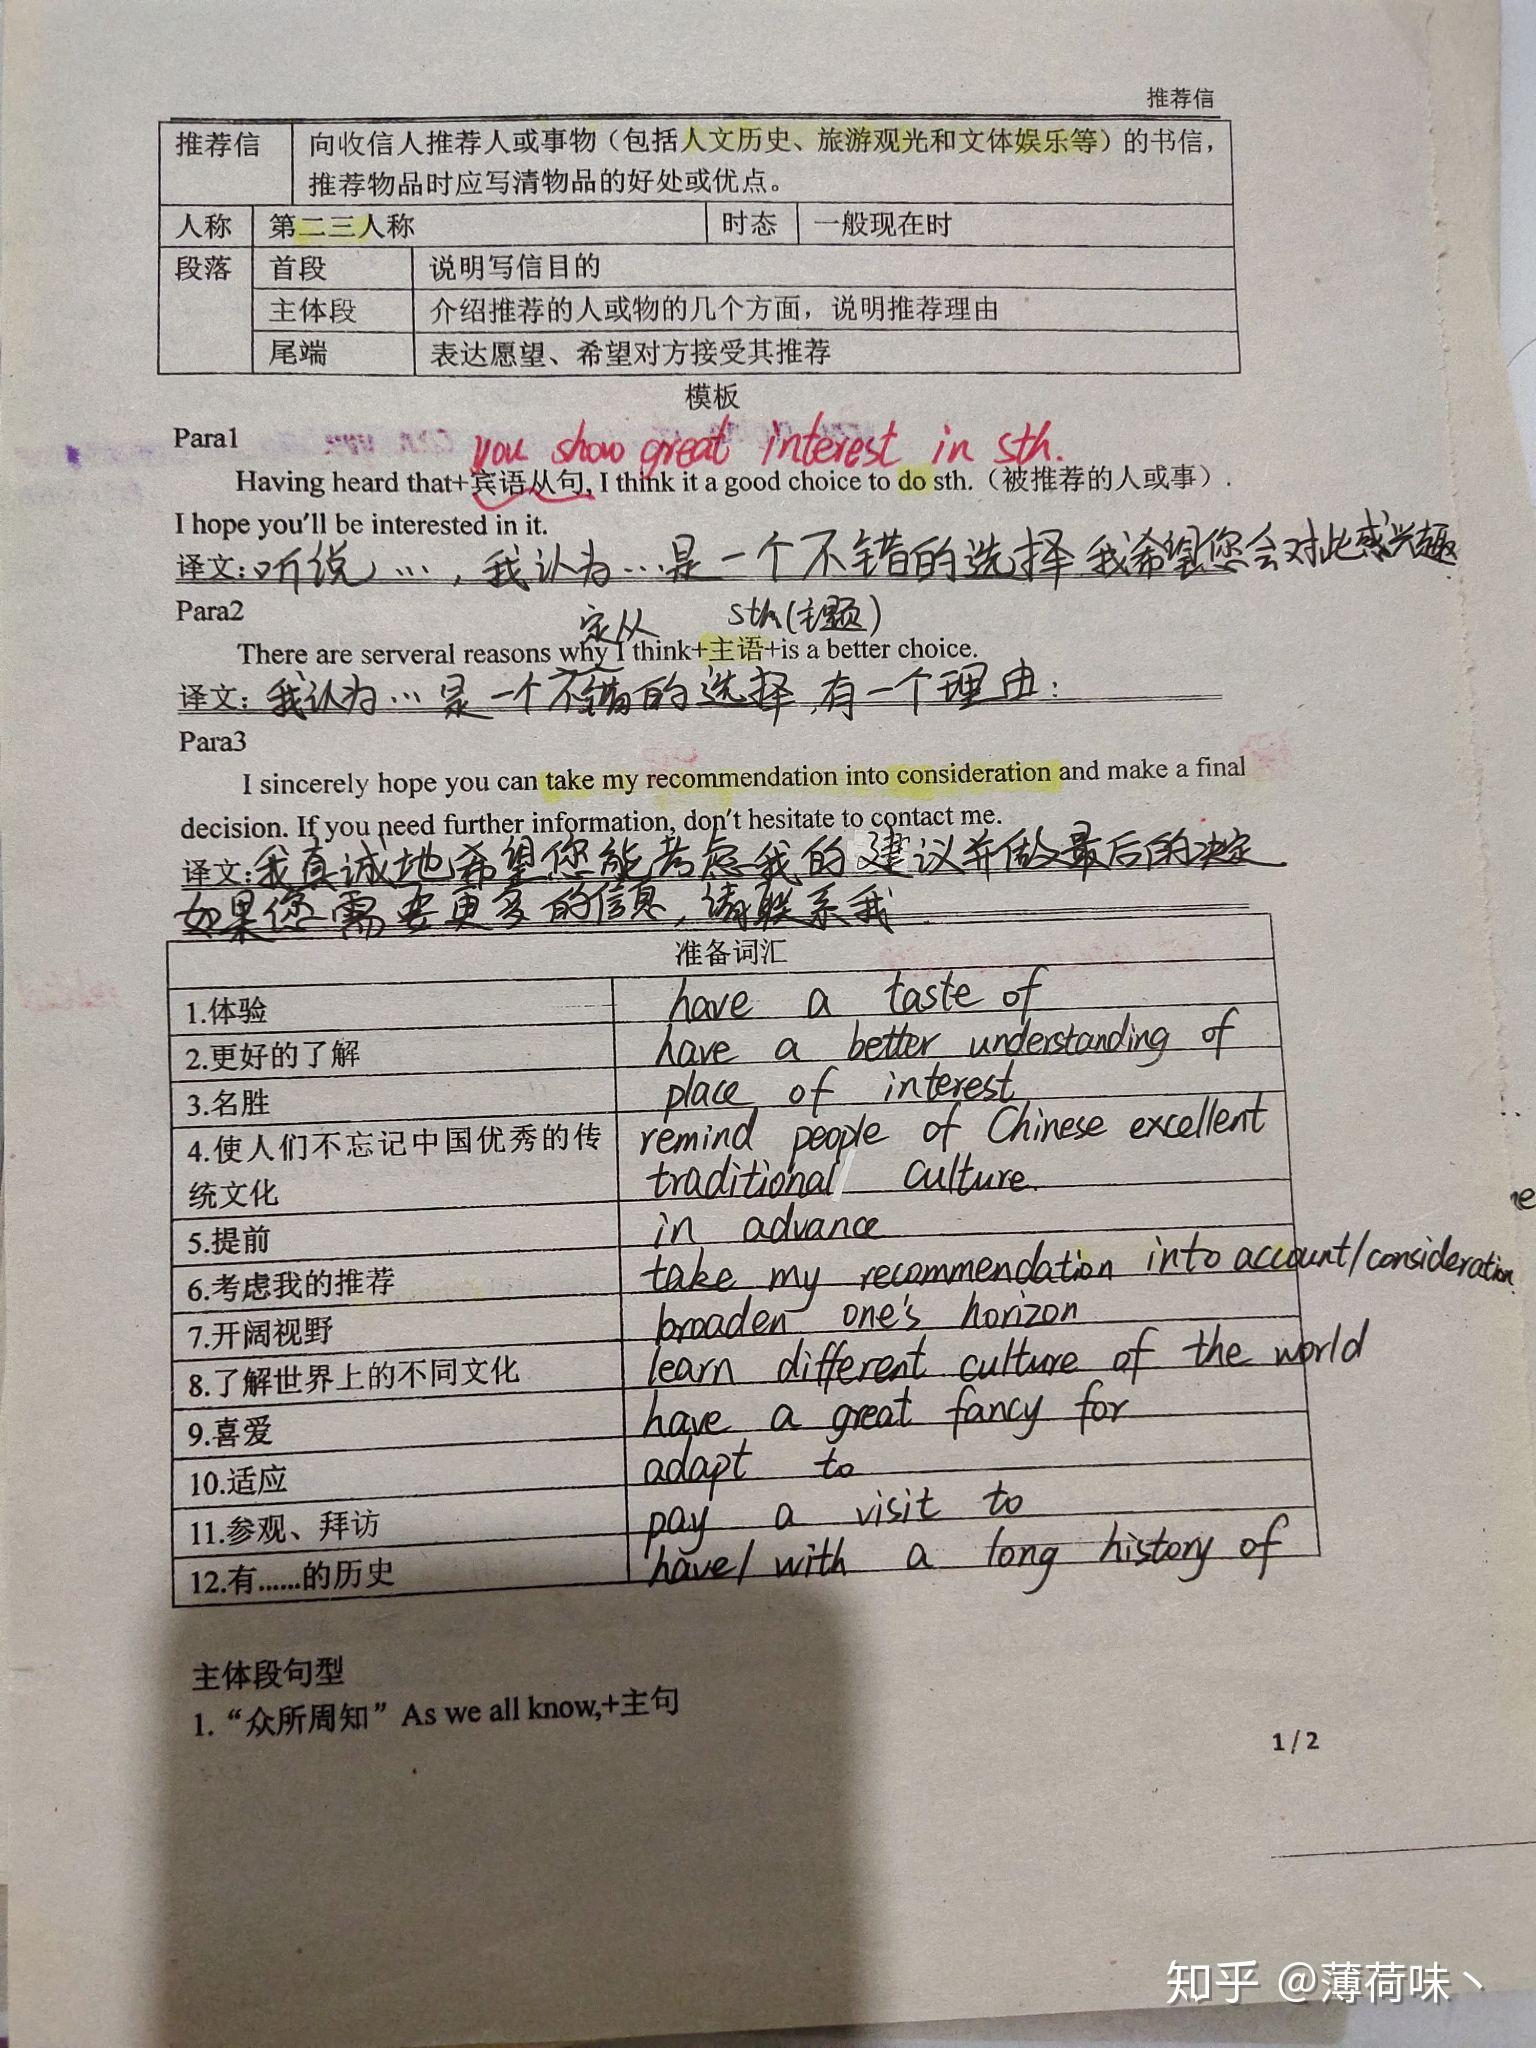 推荐信
推荐信 向收信人推荐人或事物（包括人文历史、旅游观光和文体娱乐等）的书信，
推荐物品时应写清物品的好处或优点。
人称 第二三人称 时态 一般现在时
段落 首段 说明写信目的
主体段 介绍推荐的人或物的几个方面，说明推荐理由
尾端 表达愿望、希望对方接受其推荐
模板
Para1
you show great interest in sth.
Having heard that+宾语从句, I think it a good choice to do sth.（被推荐的人或事）.
I hope you'll be interested in it.
译文：听说…，我认为…是一个不错的选择 我希望您会对此感兴趣
Para2
定从 sth(主题)
There are serveral reasons why I think+主语+is a better choice.
译文：我认为…是一个不错的选择,有一个理由：
Para3
I sincerely hope you can take my recommendation into consideration and make a final
decision. If you need further information, don't hesitate to contact me.
译文：我真诚地希望您能考虑我的建议并做最后的决定
如果您需要更多的信息，请联系我.
准备词汇
1.体验 have a taste of
2.更好的了解 have a better understanding of
3.名胜 place of interest
4.使人们不忘记中国优秀的传 remind people of Chinese excellent
统文化 traditional culture.
5.提前 in advance
6.考虑我的推荐 take my recommendation into account/consideration
7.开阔视野 broaden one's horizon
8.了解世界上的不同文化 learn different culture of the world
9.喜爱 have a great fancy for
10.适应 adapt to
11.参观、拜访 pay a visit to
12.有......的历史 have/with a long history of
主体段句型
1.“众所周知”As we all know,+主句
1 / 2
知乎 @薄荷味丶